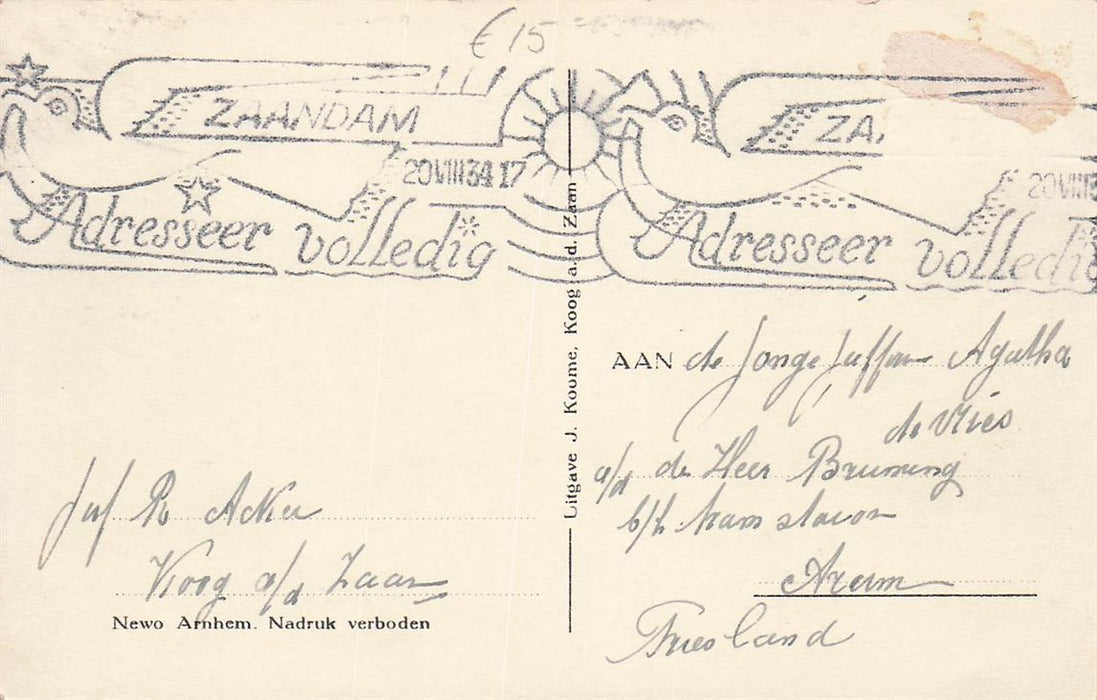 € 15
ZAANDAM
20 VIII 34 17
Adresseer volledig
ZA
20 VIII 3
Adresseer volledig
Uitgave J. Koome, Koog a.d. Zaan
AAN de Jonge Juffan Agatha
de Vries
a/d de Heer Bruining
b/h tram station
Arum
Friesland
Juf R Acker
Koog a/d Zaan
Newo Arnhem. Nadruk verboden